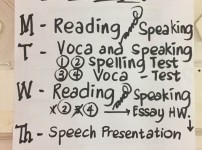 M - Reading and Speaking
T - Voca and Speaking
①② Spelling Test
③④ Voca - Test
W - Reading and Speaking
x② x④ → Essay HW.
Th - Speech Presentation